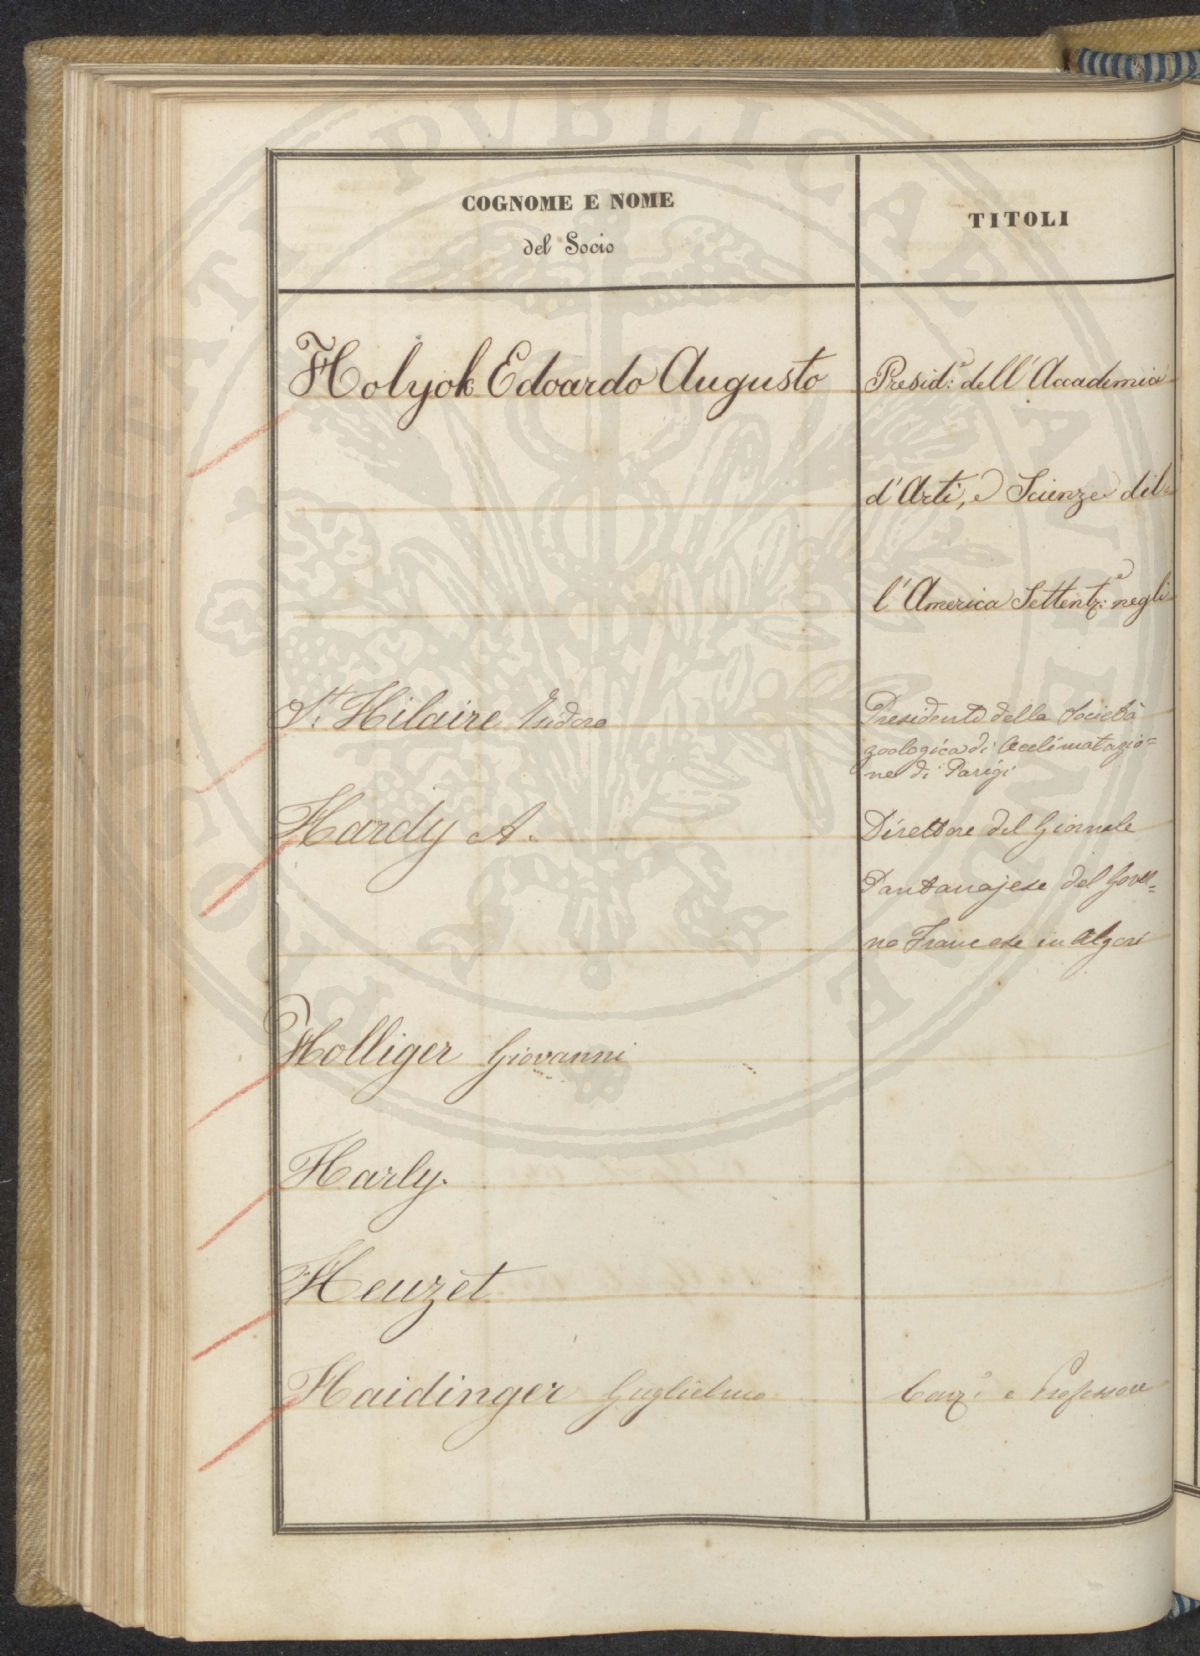 COGNOME E NOME
del Socio
TITOLI
Holyok Edoardo Augusto
Presid.e dell'Accademia
d'Arti, e Scienze del=
l'America Settent.e negli
St. Hilaire Isidoro
Presidente della Società
zoologica di Acclimatazio=
ne di Parigi
Hardy A.
Direttore del Giornale
del Gover=
no Francese in Algeri
Holliger Giovanni
Harly.
Heuzet
Haidinger Guglielmo
Cav.e e Professore